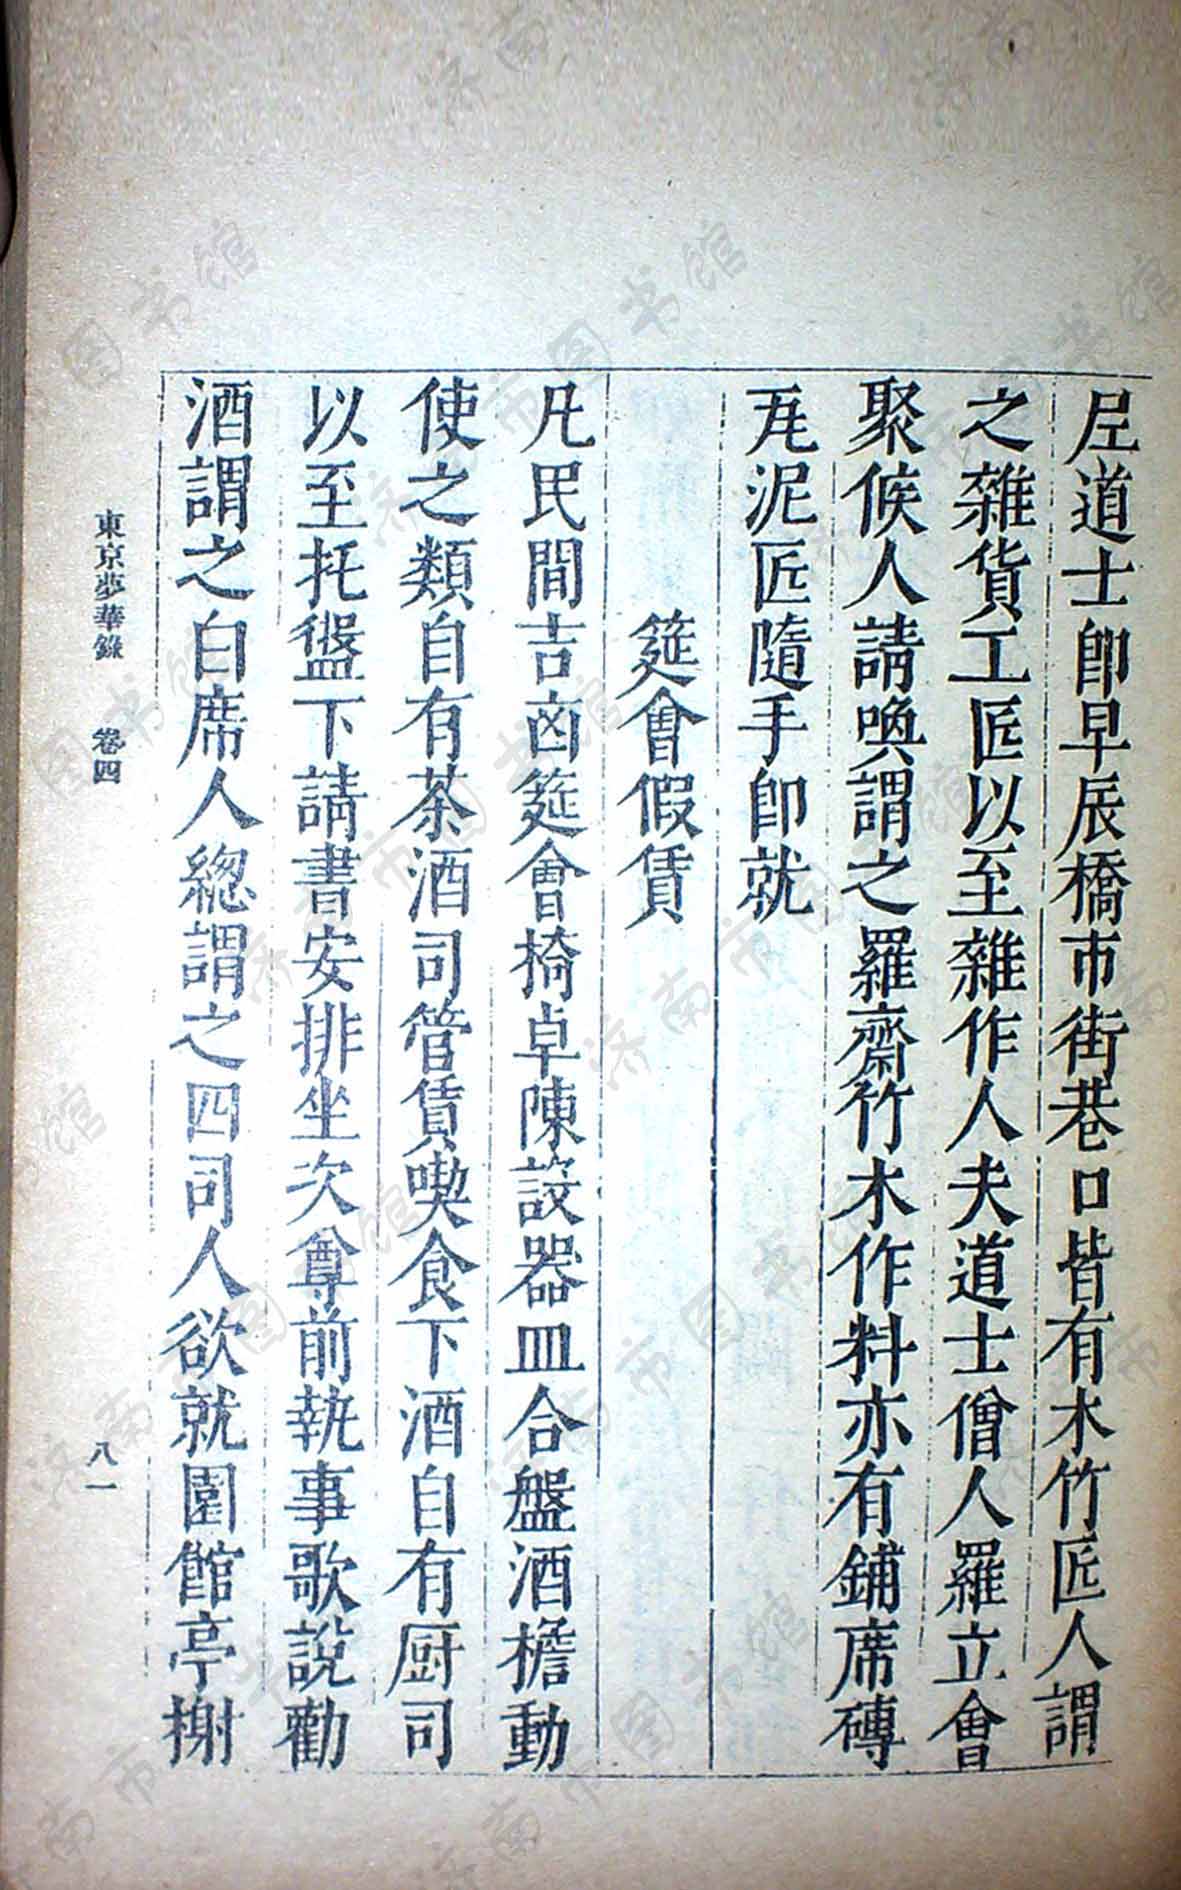 尼道士即早辰橋市街巷口皆有木竹匠人謂
之雜貨工匠以至雜作人夫道士僧人羅立會
聚候人請喚謂之羅齋竹木作料亦有鋪席磚
瓦泥匠隨手即就
筵會假賃
凡民間吉凶筵會椅卓陳設器皿合盤酒檐動
使之類自有茶酒司管賃喫食下酒自有厨司
以至托盤下請書安排坐次尊前執事歌說勸
酒謂之白席人總謂之四司人欲就園館亭榭
東京夢華錄 卷四
八一
济南市图书馆